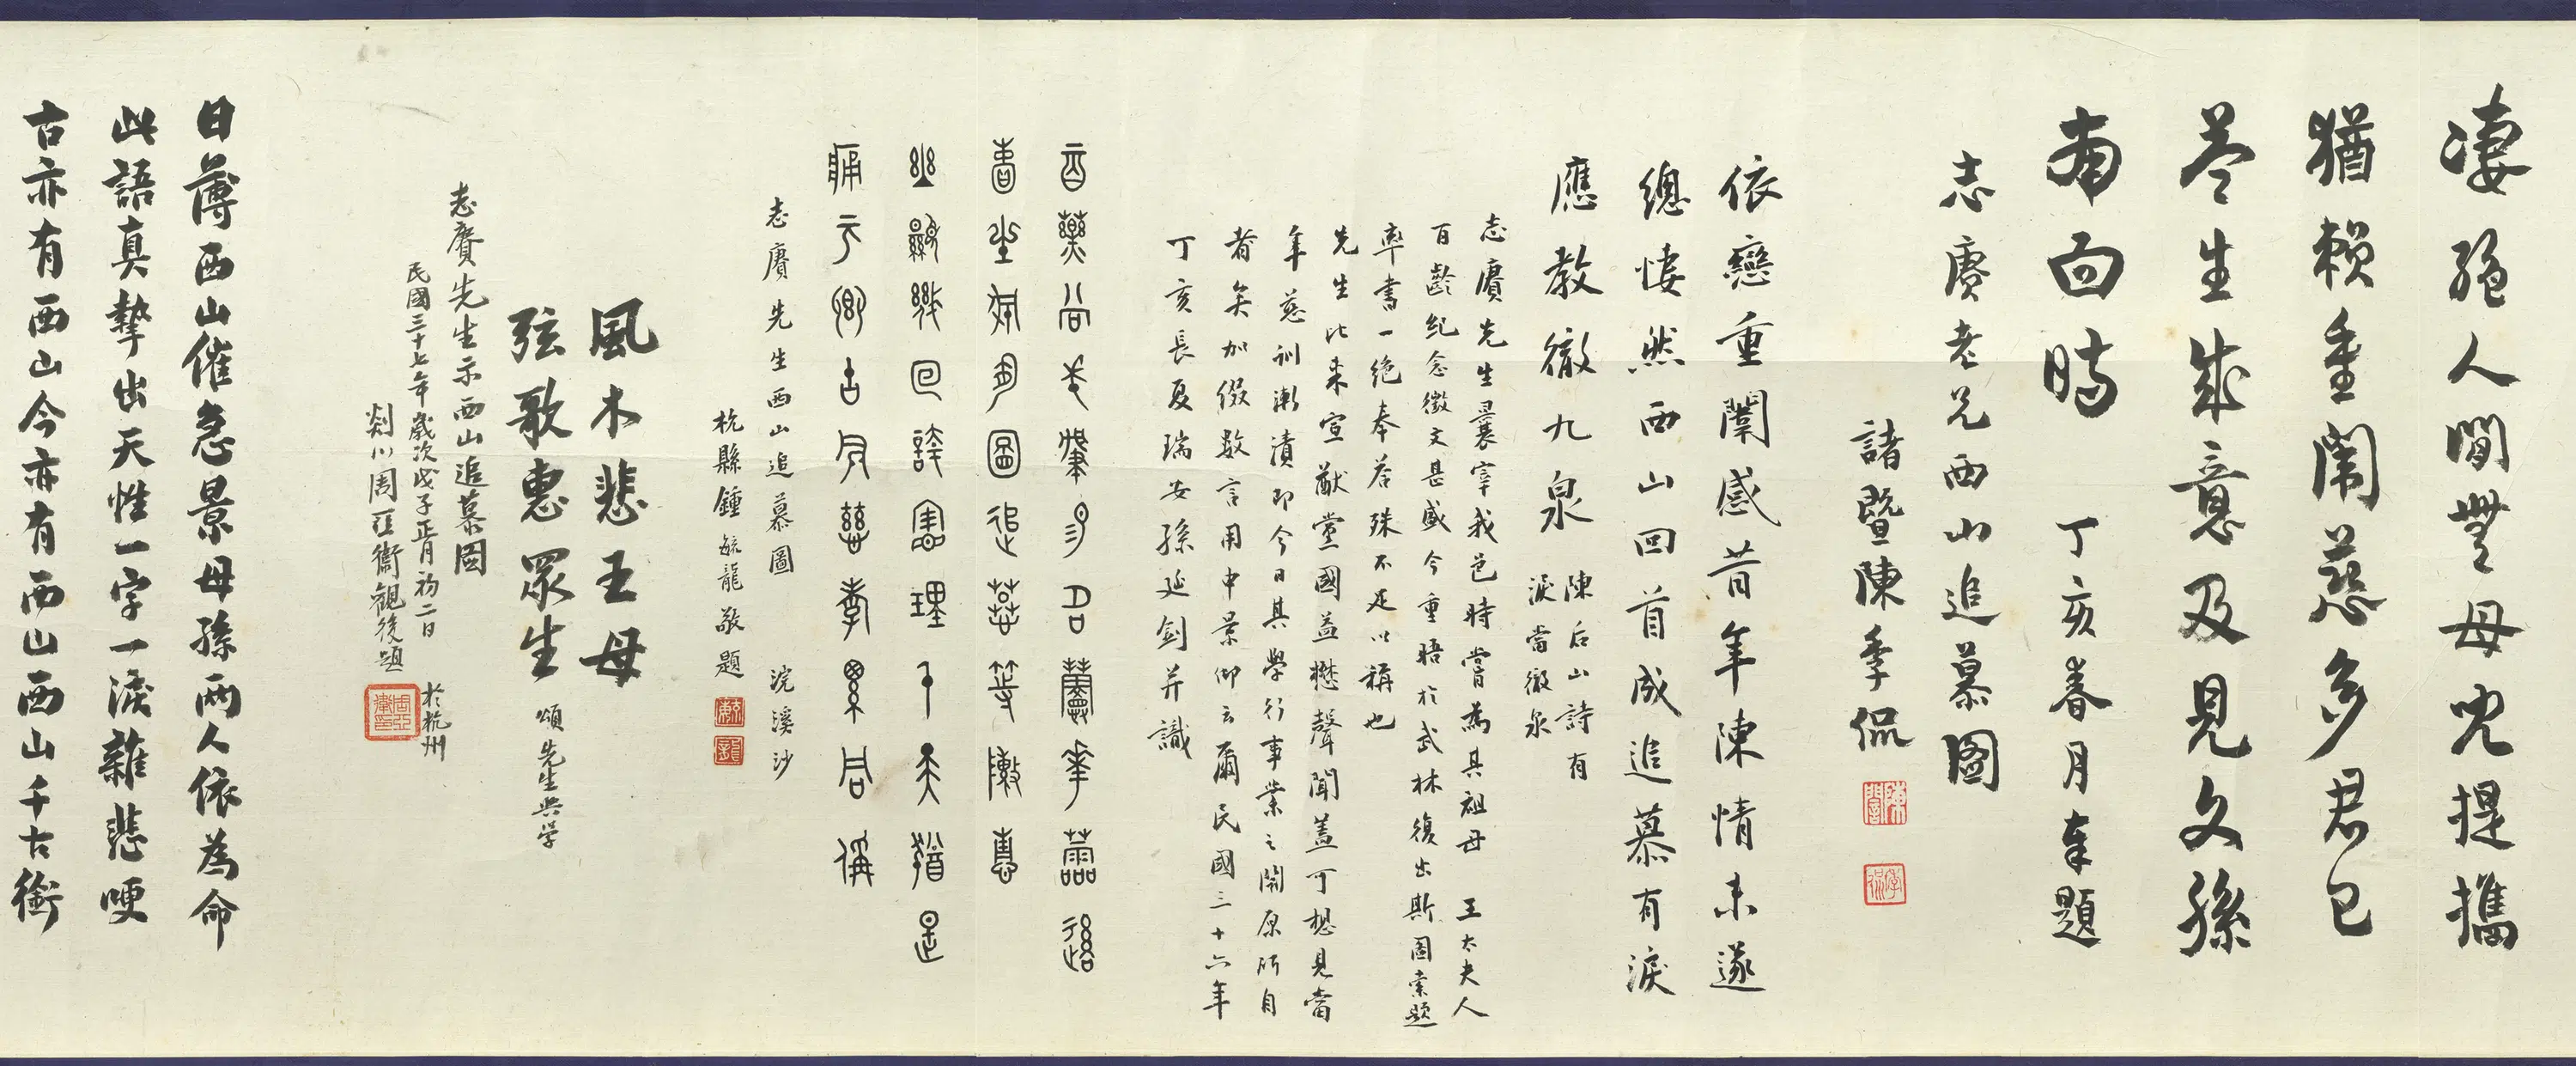 凄絕人間無母兒提攜
猶賴重闈慈多君已
尽生成意及見文孫
南向時
丁亥春月奉題
志賡老兄西山追慕圖
諸暨陳季侃
依戀重闈感昔年陳情未遂
總悽然西山回首成追慕有淚
應教徹九泉
陳后山詩有
淚當徹泉
志賡先生曩宰我邑時嘗為其祖母 王太夫人
百齡紀念徵文甚盛今重晤於武林復出斯圖索題
率書一絕奉答殊不足以稱也
先生比來宣猷黨國益懋聲聞蓋可想見當
年慈訓漸漬即今日其學行事業之開原所自
者矣加綴數言用申景仰云爾民國三十六年
丁亥長夏瑞安孫延釗并識
書堂圖追慕等陳
幽顯 回 寓理 是
古 慈孝 君稱
志賡先生西山追慕圖 浣溪沙
杭縣鍾毓龍敬題
風木悲王母
弦歌惠眾生
頌先生興學
志賡先生示西山追慕圖
民國三十七年歲次戊子正月初二日於杭州
剡川周亞衛觀後題
日薄西山催急景母孫兩人依為命
此語真摯出天性一字一淚雜悲哽
古亦有西山今亦有西山西山千古銜